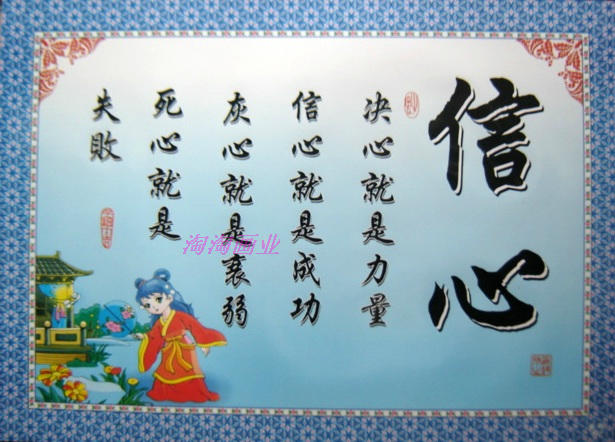 信心
决心就是力量
信心就是成功
灰心就是衰弱
死心就是
失敗
淘淘画业